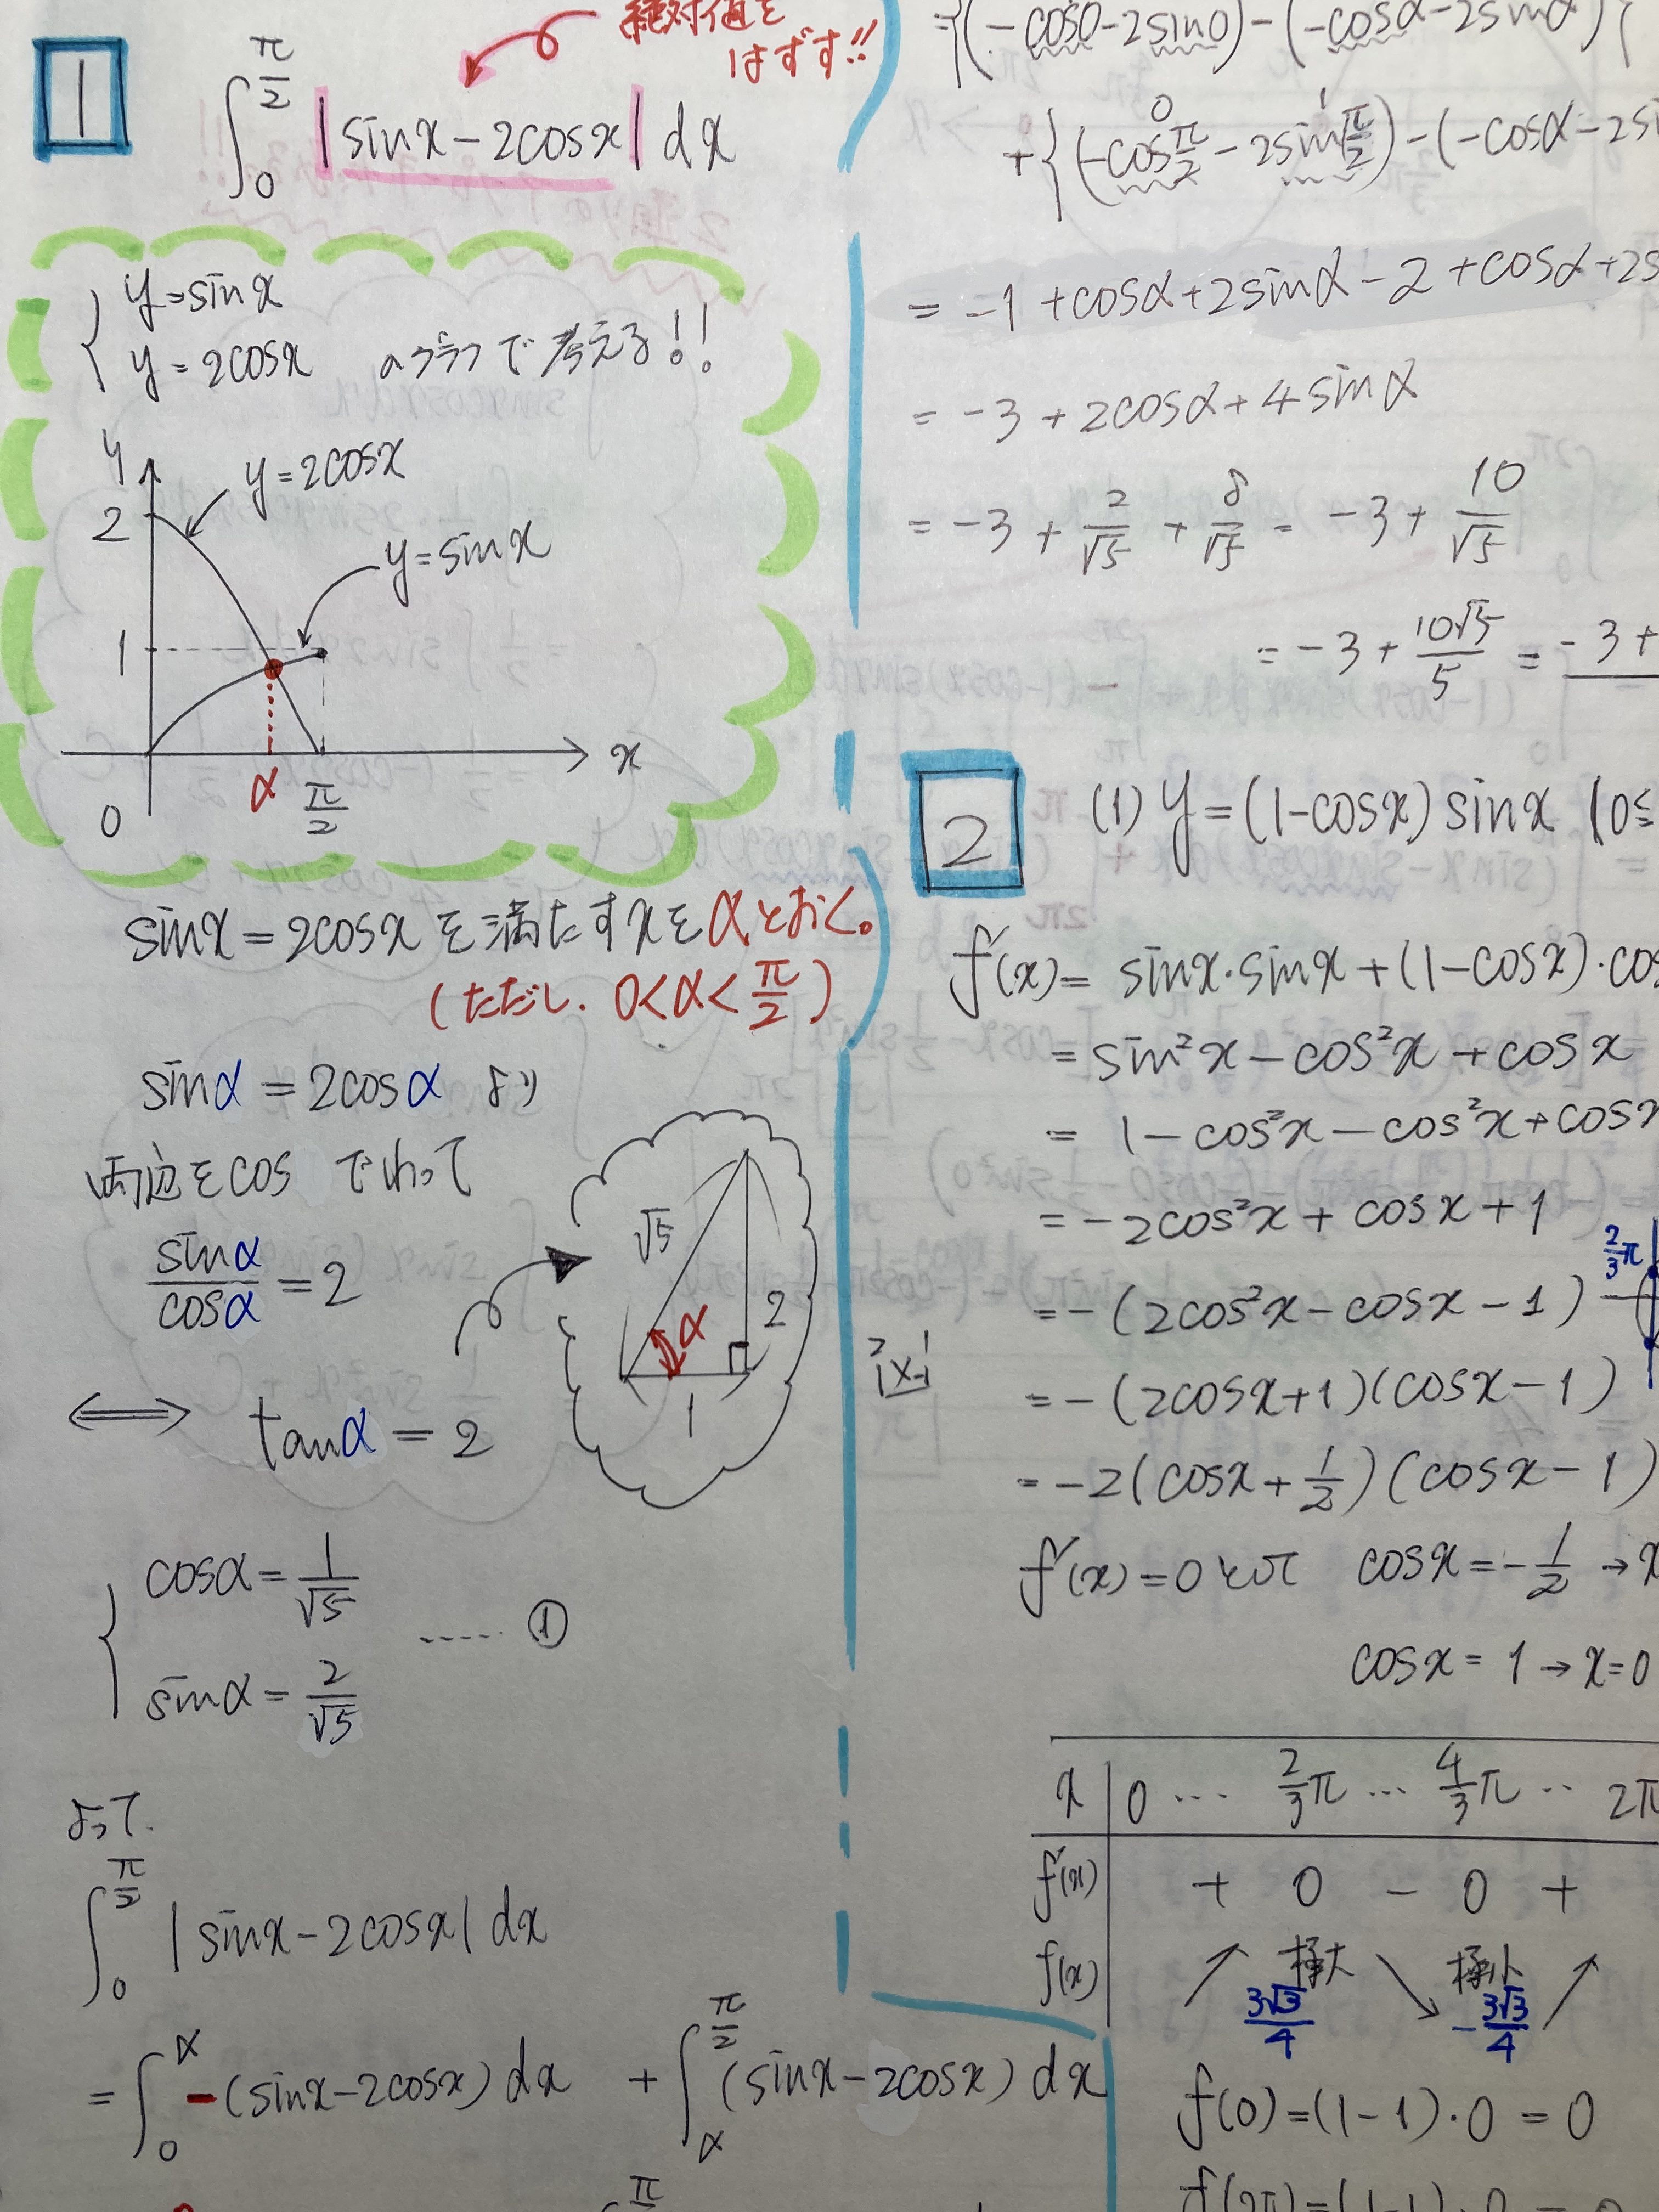 1
絶対値を
はずす!!
∫₀^(π/2) |sinx-2cosx| dx
{ y=sinx
y=2cosx のグラフで考える!!
y
2
y=2cosx
y=sinx
1
x
0
α
π/2
sinx=2cosxを満たすxをαとおく。
(ただし、0<α<π/2)
sinα=2cosα より
両辺をcos でわって
sinα/cosα=2
⟺ tanα=2
√5
α
2
1
{ cosα=1/√5
sinα=2/√5
……①
よって.
∫₀^(π/2) |sinx-2cosx| dx
=∫₀^α -(sinx-2cosx)dx +∫_α^(π/2) (sinx-2cosx)dx
π/2
={(-cos0-2sin0)-(-cosα-2sinα)}
+{(-cos π/2-2sin π/2)-(-cosα-2si
0
1
=-1+cosα+2sinα-2+cosα+2s
=-3+2cosα+4sinα
=-3+2/√5+8/√5=-3+10/√5
=-3+10√5/5=-3+
2
(1) y=(1-cosx)sinx (0≤
f'(x)=sinx·sinx+(1-cosx)·cos
=sin²x-cos²x+cosx
=1-cos²x-cos²x+cosx
=-2cos²x+cosx+1
2/3π
=-(2cos²x-cosx-1)
=-(2cosx+1)(cosx-1)
=-2(cosx+1/2)(cosx-1)
f'(x)=0として cosx=-1/2→x
cosx=1→x=0
x 0 … 2/3π … 4/3π ‥ 2π
f'(x) + 0 - 0 +
f(x) ↗ 極大 ↘ 極小 ↗
3√3/4 -3√3/4
f(0)=(1-1)·0=0
f(2π)=(1-1)·0=0